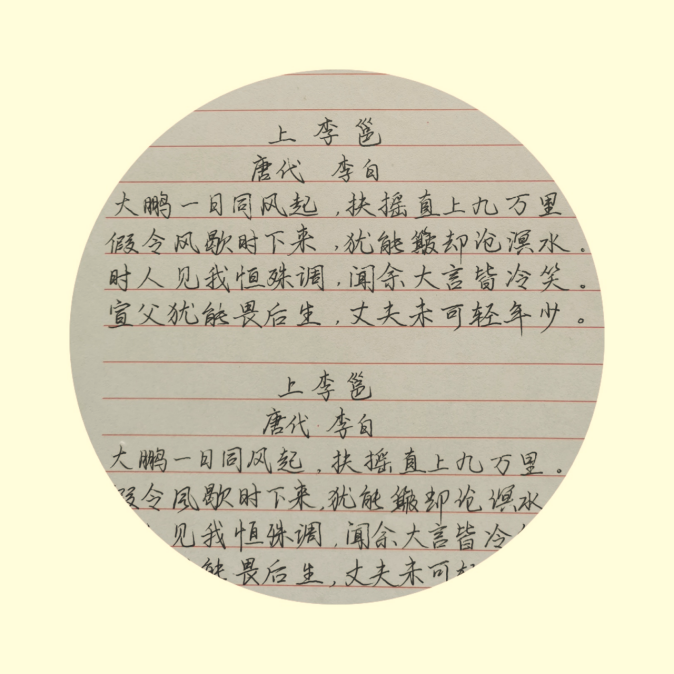 上李邕
唐代 李白
大鹏一日同风起,扶摇直上九万里
假令风歇时下来,犹能簸却沧溟水。
时人见我恒殊调,闻余大言皆冷笑。
宣父犹能畏后生,丈夫未可轻年少。
上李邕
唐代 李白
大鹏一日同风起,扶摇直上九万里。
假令风歇时下来,犹能簸却沧溟水
见我恒殊调,闻余大言皆冷
能畏后生,丈夫未可